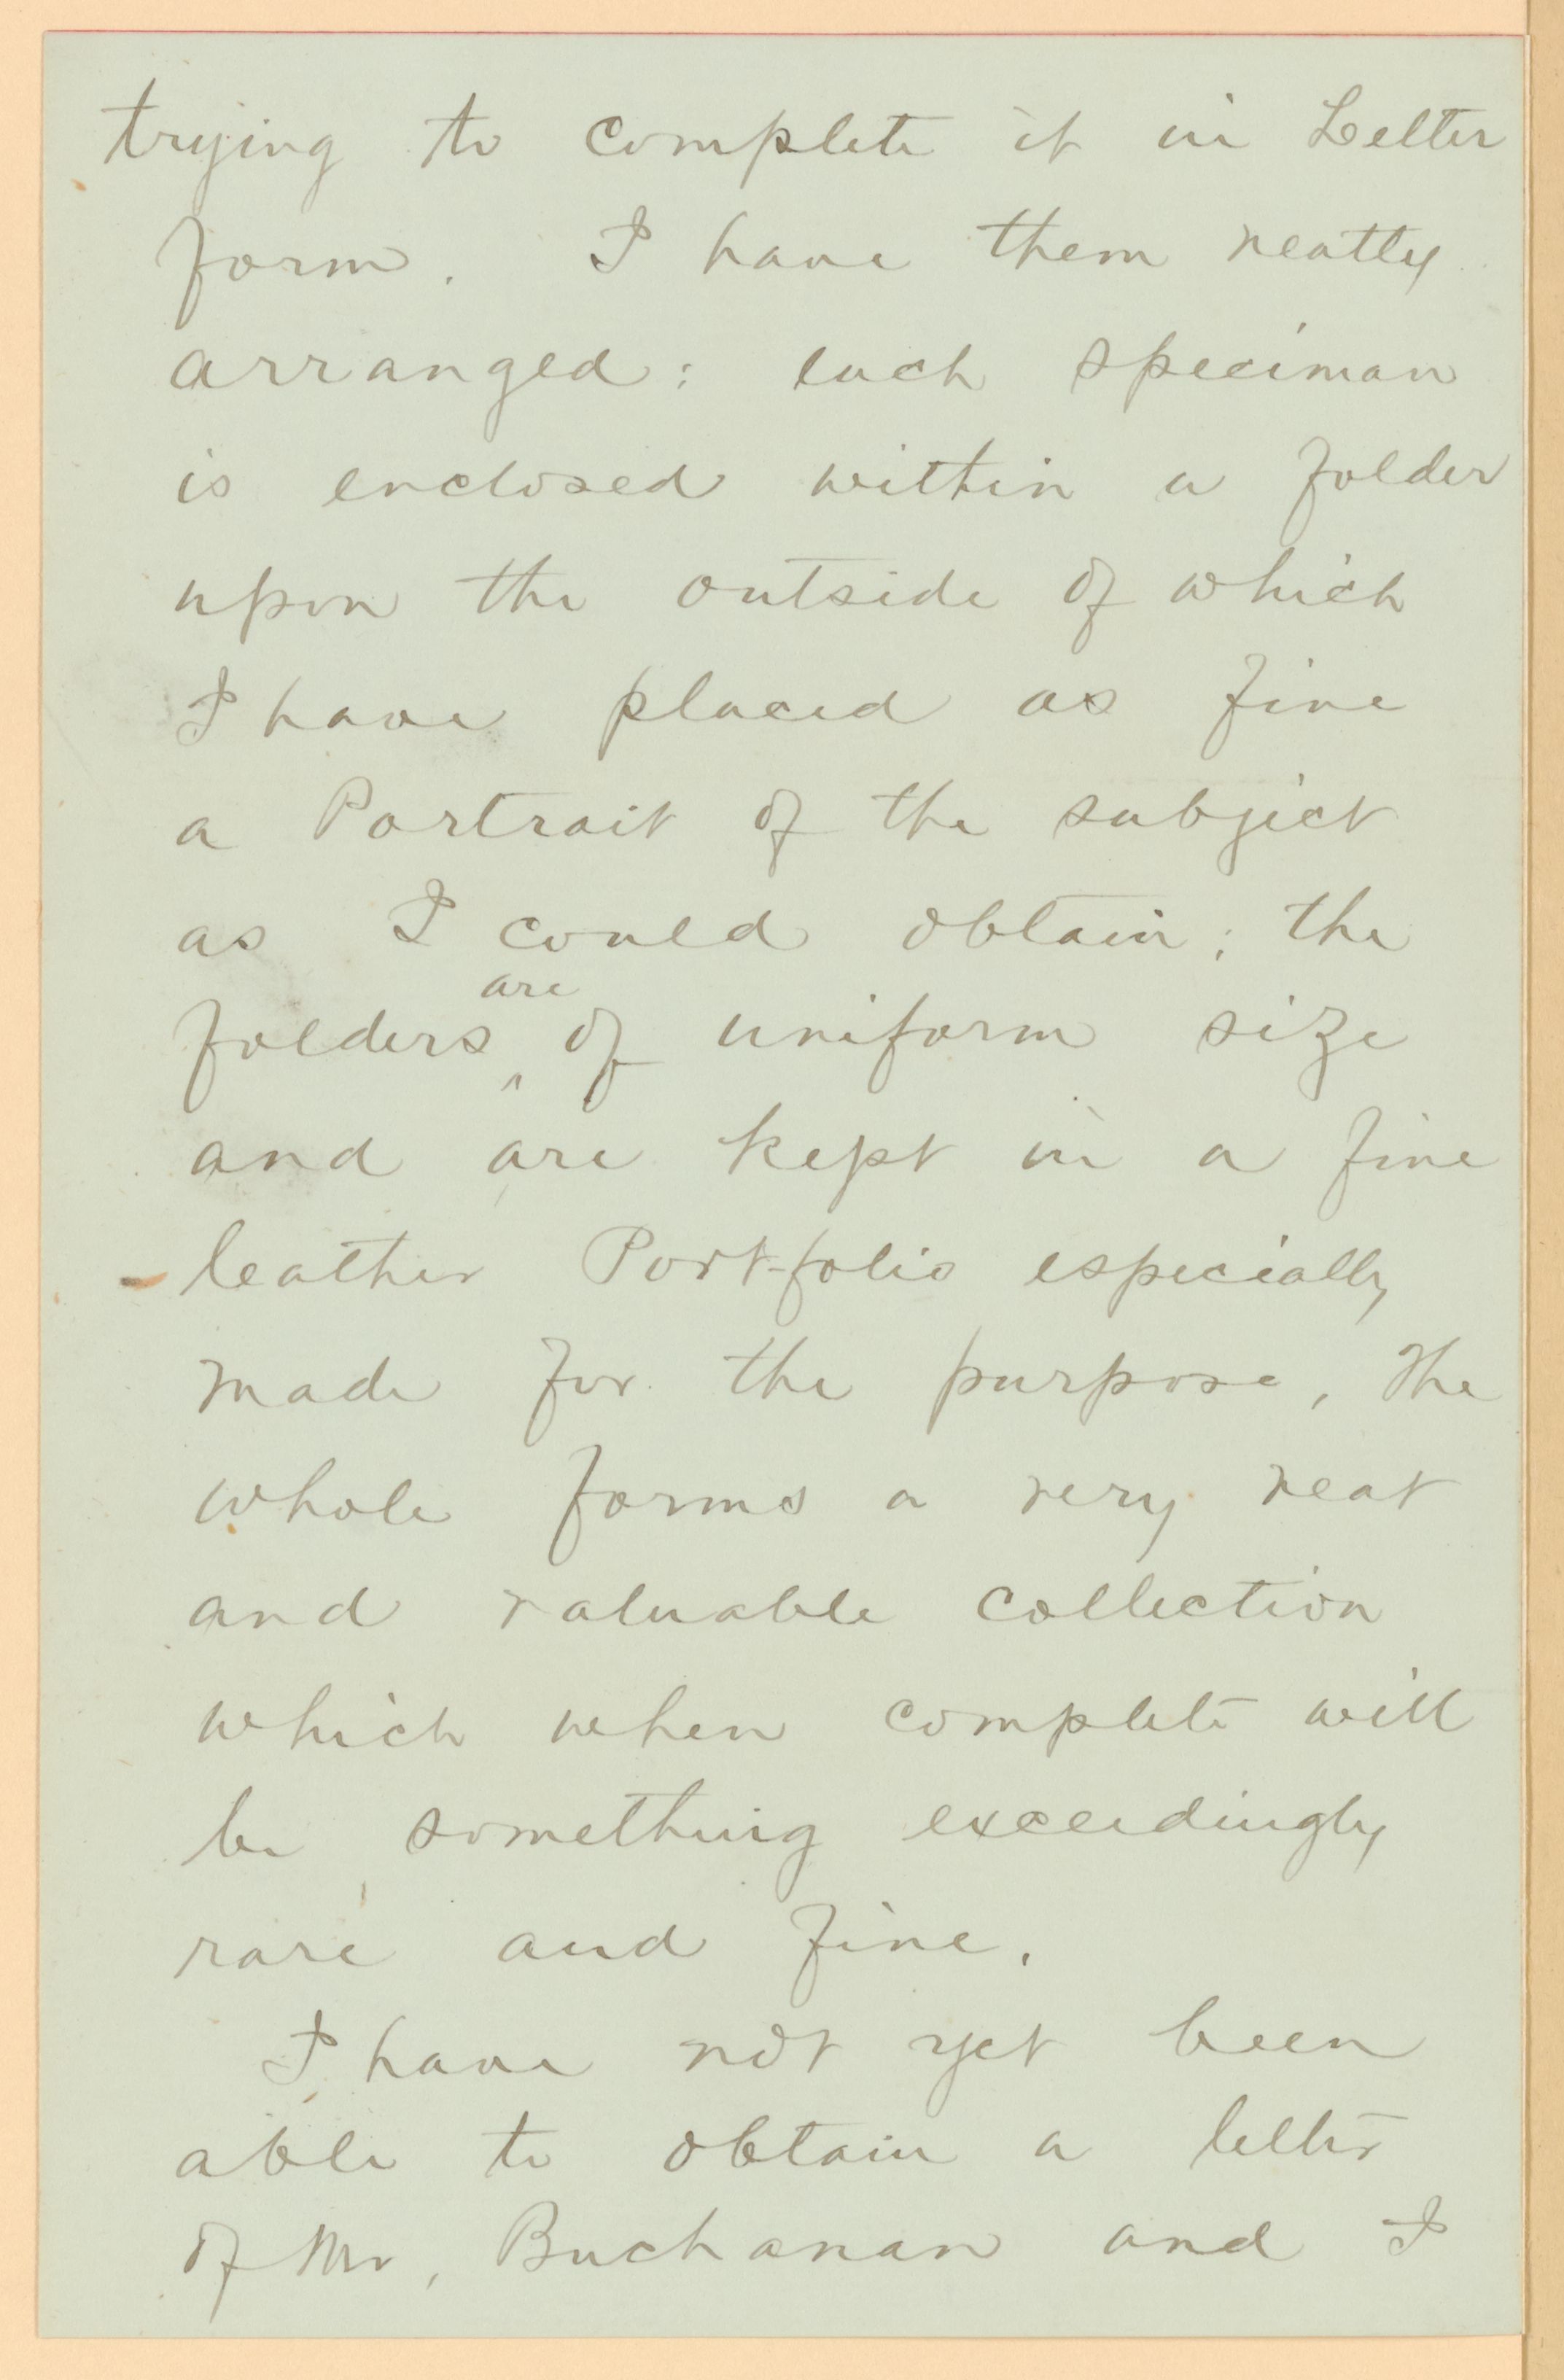 trying to complete it in Letter
form. I have them neatly
arranged: each speciman
is enclosed within a folder
upon the outside of which
I have placed as fine
a Portrait of the subject
as I could obtain; the
are
folders ^ of uniform size
and are kept in a fine
leather Port-folio especially
made for the purpose, The
whole forms a very neat
and valuable collection
which when complete will
be something exceedingly
rare and fine.
I have not yet been
able to obtain a letter
of Mr, Buchanan and I